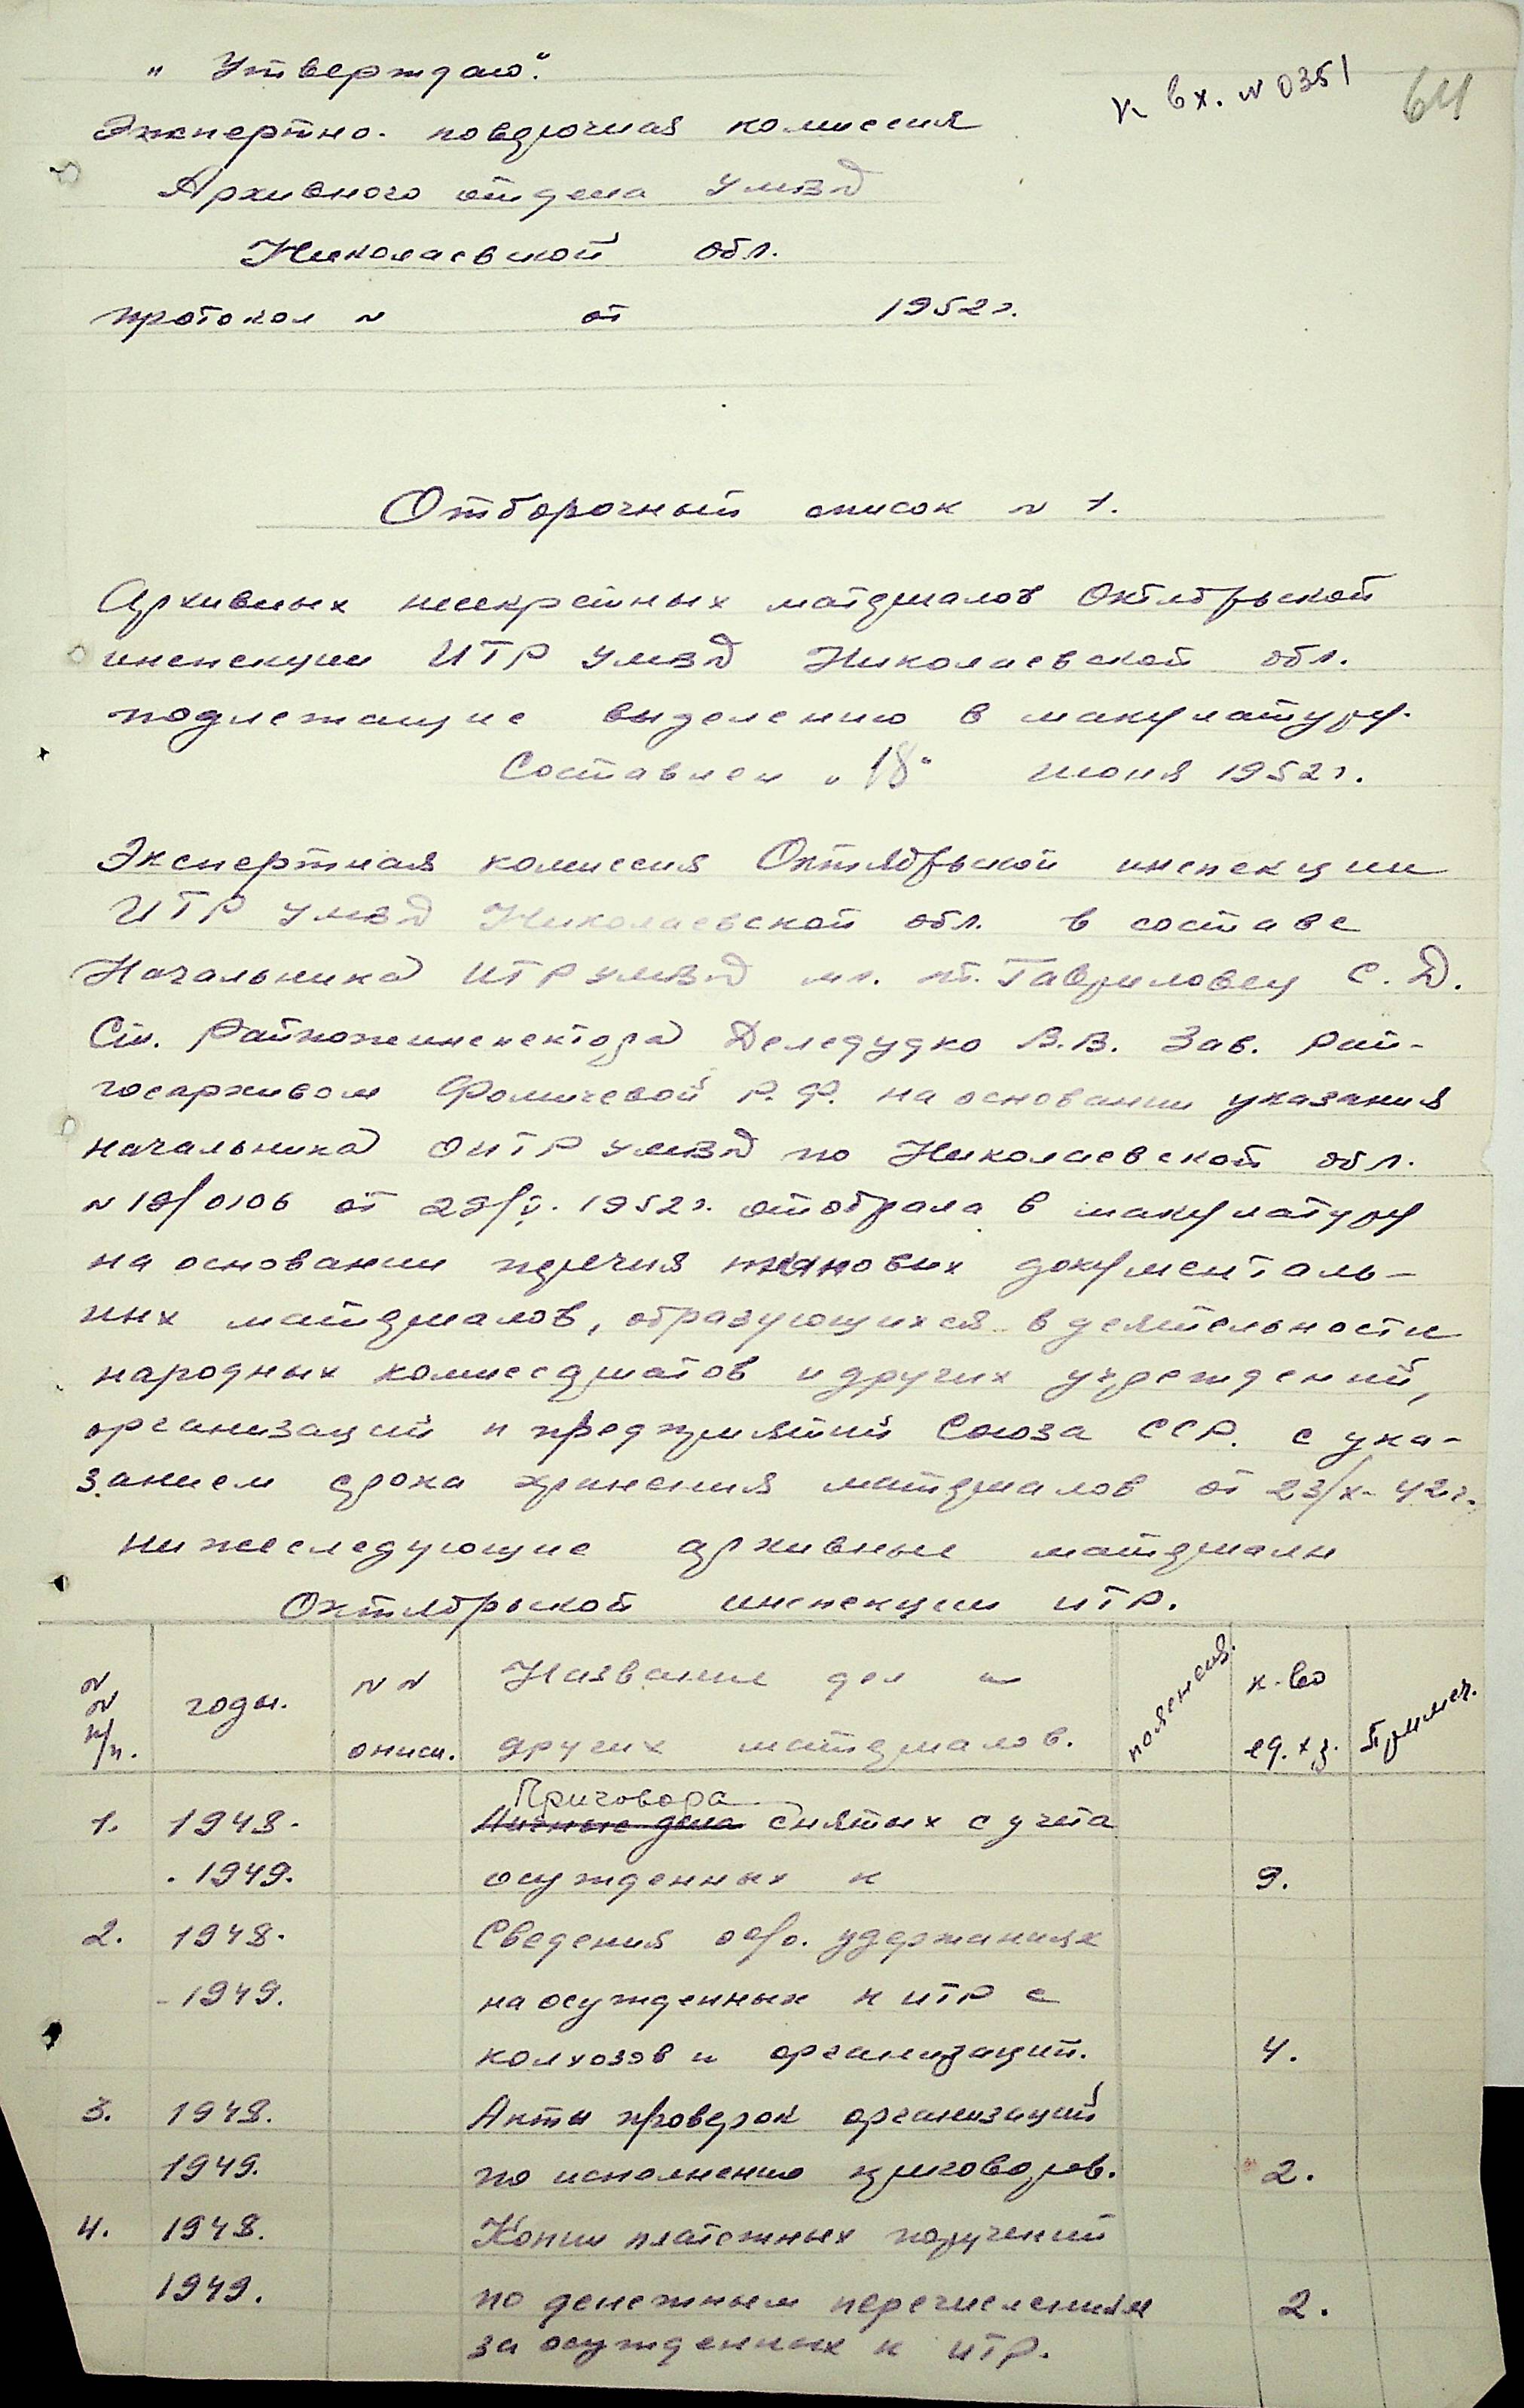 „Утверждаю“.
к вх. № 0351
64
Экспертно-поверочная комиссия
Архивного отдела УМВД
Николаевской обл.
протокол № от 1952 г.
Отборочный список № 1.
Архивных несекретных материалов Октябрьской
инспекции ИТР УМВД Николаевской обл.
подлежащие выделению в макулатуру.
Составлен „18“ июня 1952 г.
Экспертная комиссия Октябрьской инспекции
ИТР УМВД Николаевской обл. в составе
Начальника ИТР УМВД мл. л-т. Гавриловец С. Д.
Ст. Деледудко В.В. Зав. Рай-
госархивом Фомичевой Р. Ф. на основании указания
начальника ОИТР УМВД по Николаевской обл.
№ 18/0106 от 29/V. 1952 г. отобрала в макулатуру
на основании перечня типовых документаль-
ных материалов, образующихся в деятельности
народных комиссариатов и других учреждений,
организаций и предприятий Союза ССР. с ука-
занием срока хранения материалов от 23/X-42 г.
нижеследующие архивные материалы
Октябрьской инспекции ИТР.
№ № п/п. годы. № № описи. Название дел и других материалов. пояснения. к-во ед. хр. Примеч.
Приговора
1. 1948. Личные дела снятых с учета
1949. осужденных к 9.
2. 1948. Сведения о удержаниях
-1949. на осужденных к ИТР с
колхозов и организаций. 4.
3. 1948. Акты проверок организаций
1949. по исполнению приговоров. 2.
4. 1948. Копии платежных поручений
1949. по денежным перечислениям 2.
за осужденных к ИТР.